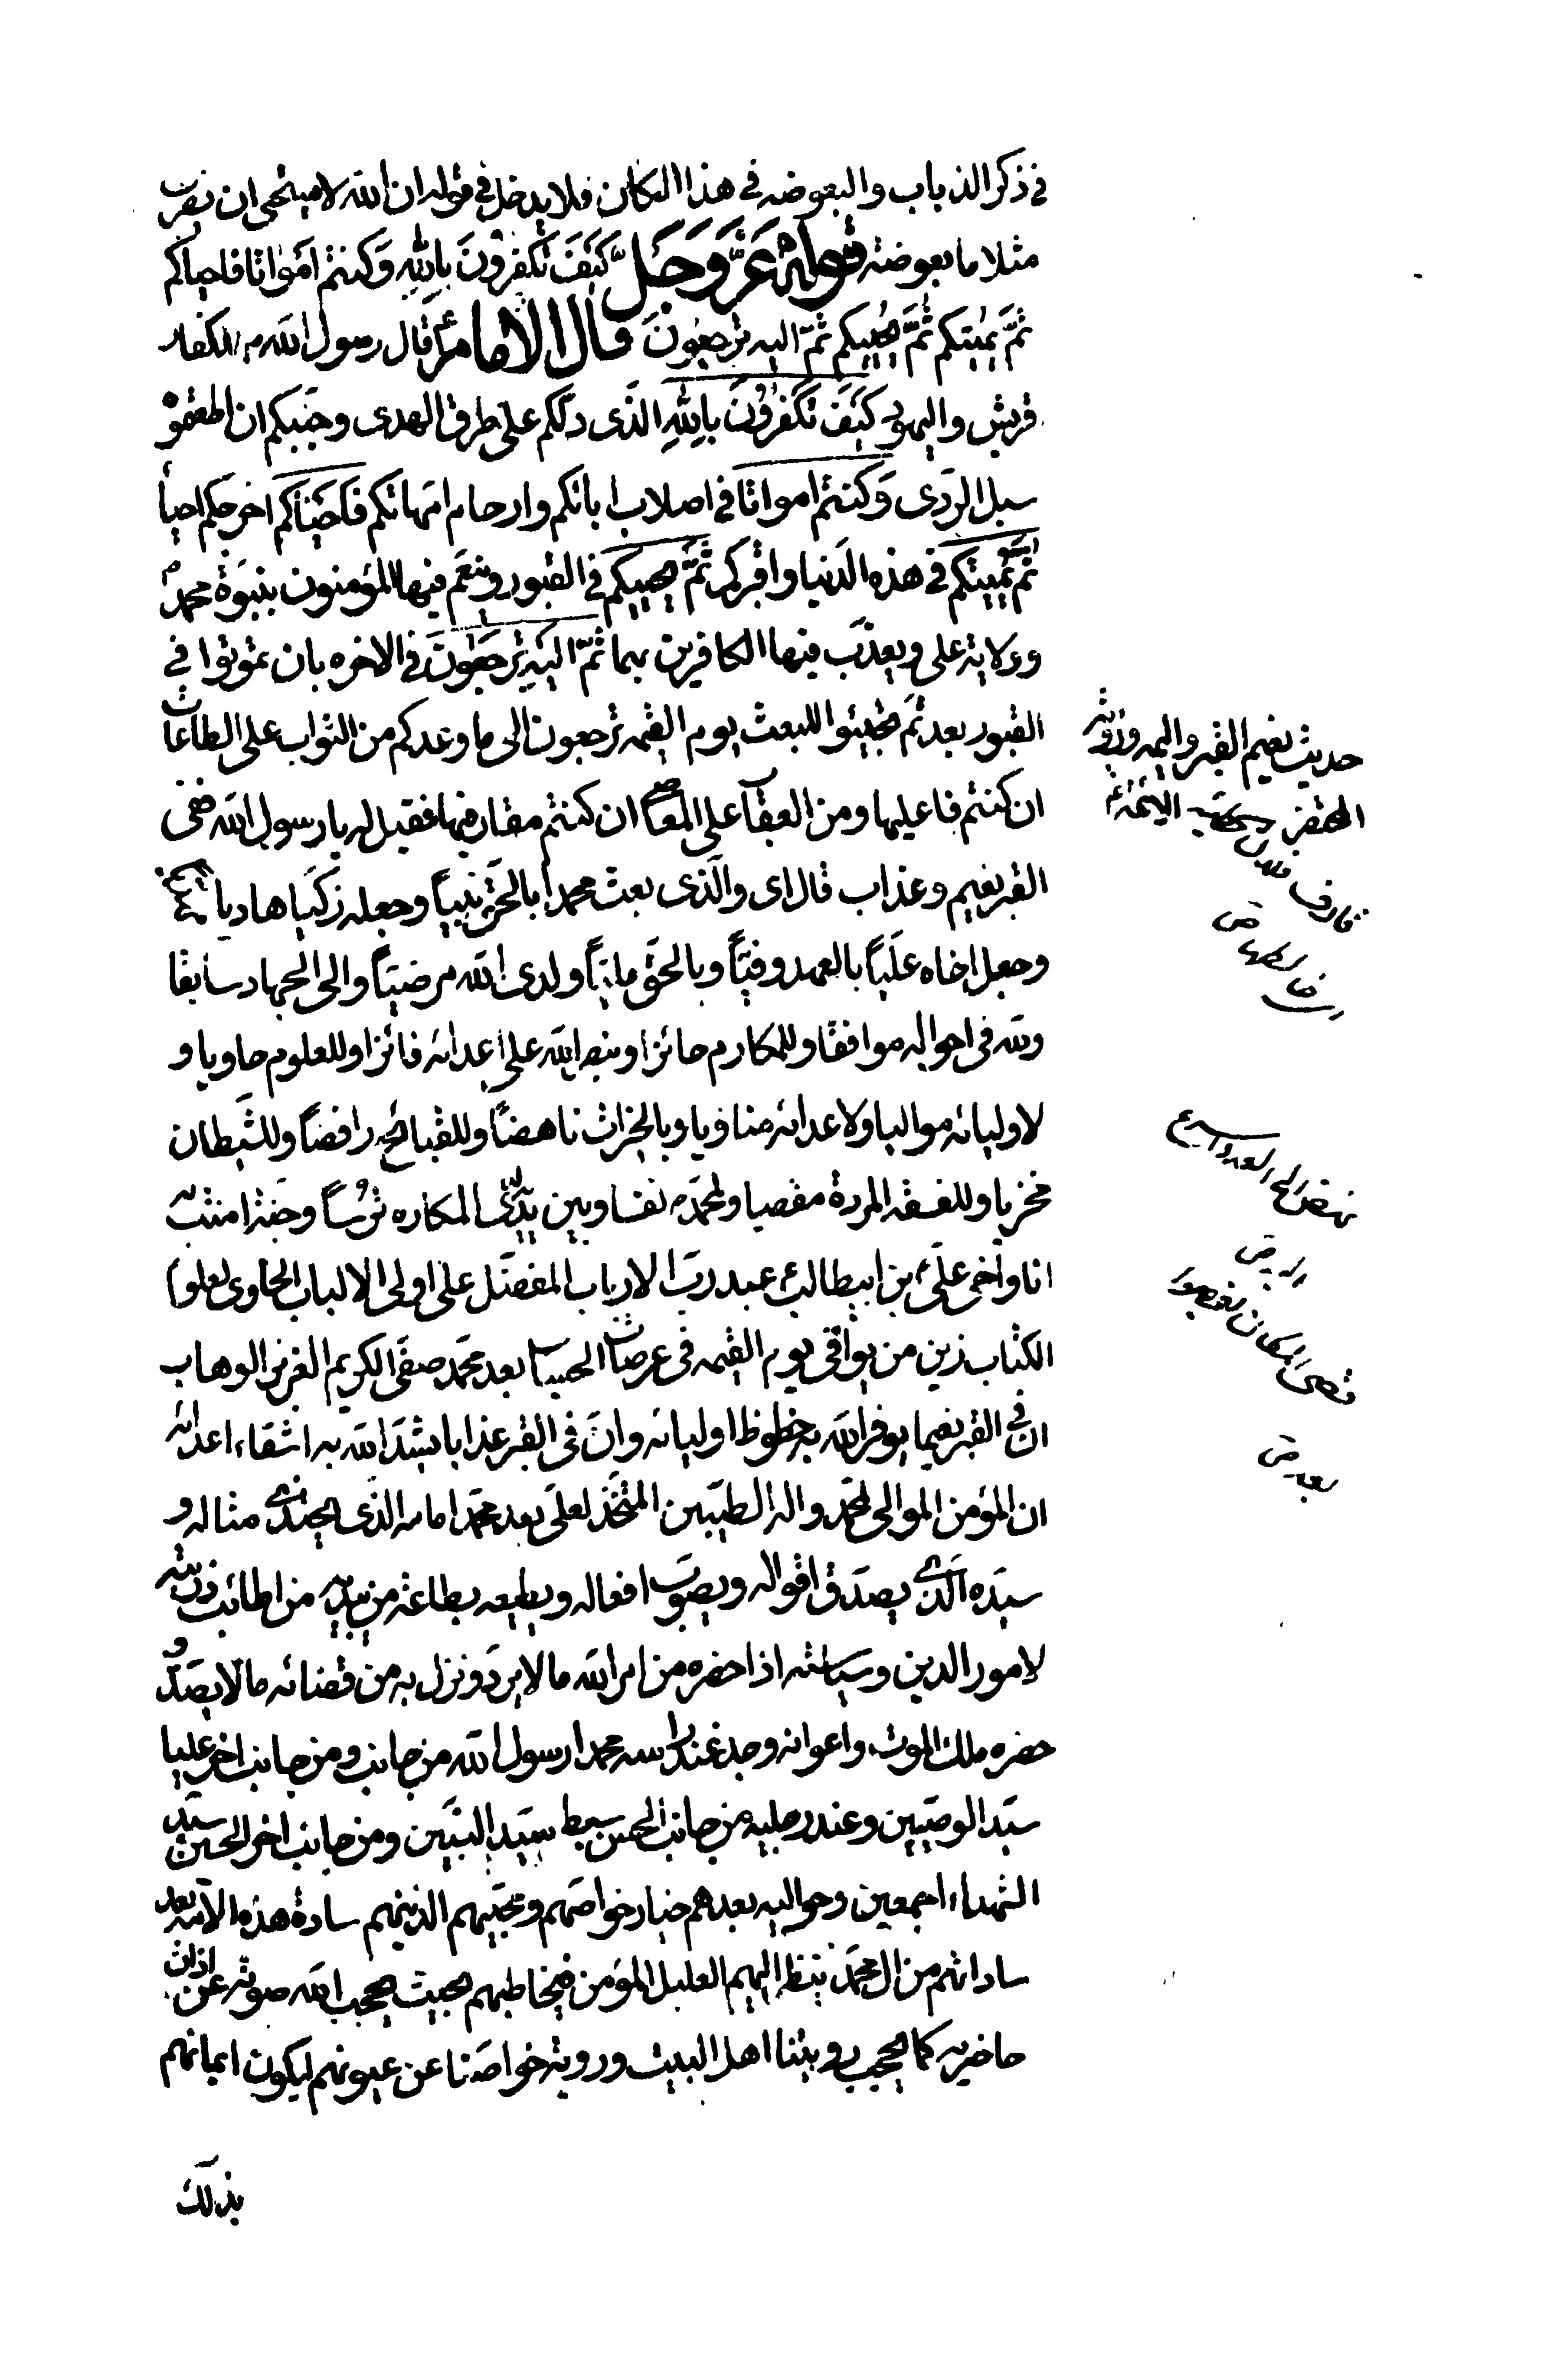 في ذكر الذباب والبعوضه في هذا المكان فلا يدخل في قوله ان الله لا يستحيى ان يضرب
مثلا ما بعوضة قوله عَزَّ وَجَلَّ كَيْفَ تَكْفُرُونَ بِاللهِ وَكنتم اَمْوَاتا فاحياكم
ثُمَّ يُمِيتكم ثُمَّ يُحْيِيكم ثمّ اليه ترجعُونَ قال الامام ع قال رسول الله ص لكفار
قريش واليهود كَيْفَ تَكْفُرُونَ بِاللهِ الَّذى دلّكم على طرق الهدى وجنّبكم ان اطعتموه
سبل الرّدى وَكنتم امواتا في اصلاب ابائكم وارحام امّهاتكم فَاَحْيَاكُم اخرجكم احياً
ثم يُمِيتكم في هذه الدّنيا واقبركم ثُمَّ يحييكم في القبور وينعّم فيها المؤمنون بنبوّة محمد ص
وولاية على ويعذّب فيها الكافرين بهما ثمّ اليَهِ تُرْجَعُونَ في الاخره بان تموتوا في
القبور بعد ثمّ تحيّوا للبعث يوم القيمه ترجعون الى ما وعدكم من الثواب على الطاعات
ان كنتم فاعليها ومن العقاب على المعاصى ان كنتم مقارفيها فقيل له يا رسول الله ففى
القبر نعيم وعذاب قال اى والّذى بعث محمدا بالحقّ نبيّاً وجعله زكيّا هاديا
وجعل اخاه عليّاً بالعهد وفيّاً وبالحقّ مليّاً ولدى الله مرضيّاً والى الجهاد سابقا
ولله في احواله موافقا وللمكارم حائزا وبنصر الله على اعدائه فائزا وللعلوم حاويا و
لاوليائه مواليا ولاعدائه مناويا وبالخيرات ناهضاً وللقبائح رافضاً وللشّيطان
مخزيا وللفسقه المردة مقصيا ولمحمّد ص نفسا وبين يديه لدى المكاره ترُساً وجنّة امنت به
انا واخى علىّ بن ابيطالب عبد ربّ الارباب المفضّل على اولى الالباب الحاوى لعلوم
الكتاب زين من يوافى يوم القيمه في عرصات الحساب بعد محمّد صفىّ الكريم العزيز الوهاب
ان في القبر نعيما يوفر الله به حظوظ اوليائه وانّ في القبر عذابا يشدّد الله به اشقاء اعدائه
ان المؤمن الموالى لمحمّد واله الطيّبين المتّخذ لعلىّ بعد محمّد امامه الذّى يحتذى مثاله و
سيّده الّذى يصدّق اقواله ويصوّب افعاله ويطيعه بطاعة من يندبه من اطائب ذريّته
لامور الدين وسياسته اذا حضره من امر الله ما لا يردّ ونزل به من قضائه ما لا يصدّ و
حضره ملك الموت واعوانه وجد عند راسه محمدا رسول الله من جانب ومن جانب اخر عليا
سيّد الوصيّين وعند رجليه من جانب الحسن سبط سيّد النّبيّين ومن جانب اخر الحسين سيّد
الشهداء اجمعين وحواليه بعدهم خيار خواصّهم ومحبّيهم الذينهم سادة هذه الامّه بعد
ساداتهم من ال محمّد ينظر اليهم العليل المؤمن فيخاطبهم بحيث يحجب الله صوته عن اذان
حاضريه كما يحجب رويتنا اهل البيت وروية خواصّنا عن عيونهم ليكون ايمانهم
بذلك
حديث نعيم القبر
المحتضر الائمة ع
نهض الى العدو اسرع